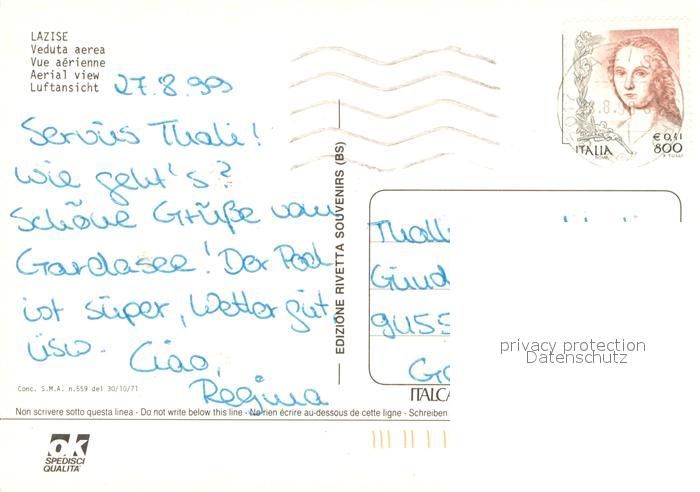 LAZISE
Veduta aerea
Vue aérienne
Aerial view
Luftansicht
27.8.99
Servüs Thali!
Wie geht's?
Schöne Grüße vom
Gardasee! Der Pool
ist süper, Wetter güt,
üsw. Ciao,
Regina
Conc. S.M.A. n.559 del 30/10/71
EDIZIONE RIVETTA SOUVENIRS (BS)
€ 0,41
ITALIA 800
ROMA
F. TULLI
privacy protection
Datenschutz
ITALCA
Non scrivere sotto questa linea - Do not write below this line - Ne rien écrire au-dessous de cette ligne - Schreiben
ok
SPEDISCI
QUALITA'